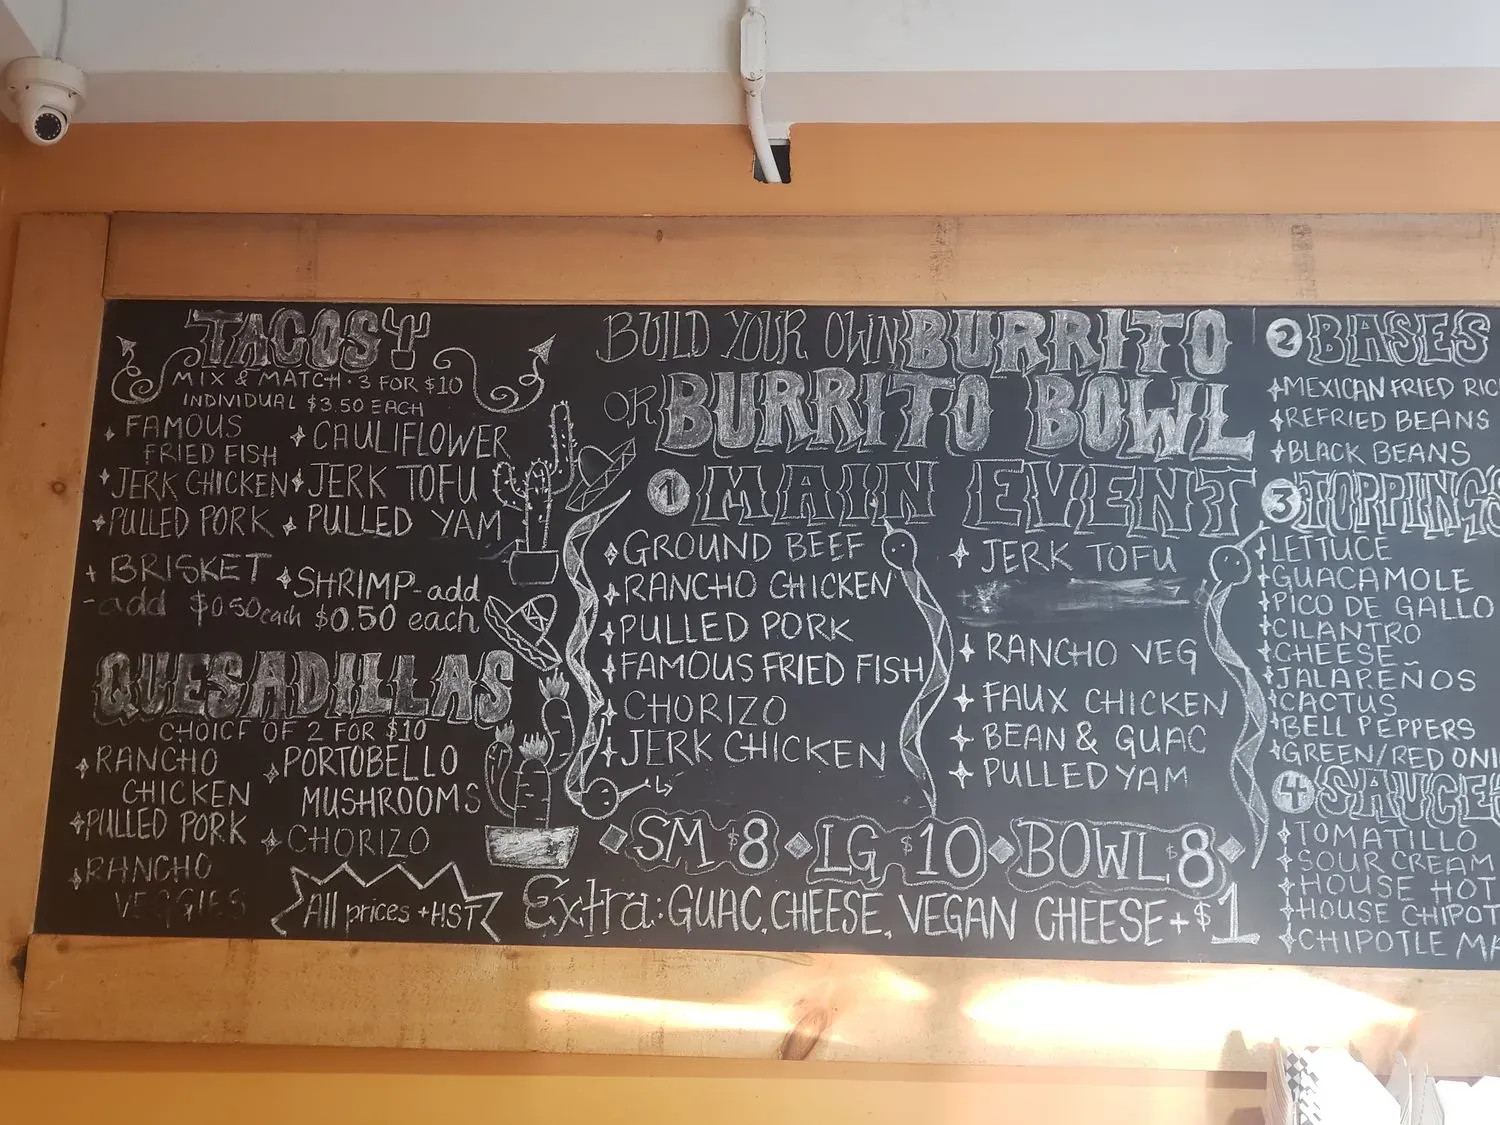 TACOS
MIX & MATCH · 3 FOR $10
INDIVIDUAL $3.50 EACH
FAMOUS
FRIED FISH
JERK CHICKEN
PULLED PORK
BRISKET
-add $0.50 each
CAULIFLOWER
JERK TOFU
PULLED YAM
SHRIMP-add
$0.50 each
QUESADILLAS
CHOICE OF 2 FOR $10
RANCHO
CHICKEN
PULLED PORK
RANCHO
VEGGIES
PORTOBELLO
MUSHROOMS
CHORIZO
All prices +HST
BUILD YOUR OWN BURRITO
OR BURRITO BOWL
1 MAIN EVENT
GROUND BEEF
RANCHO CHICKEN
PULLED PORK
FAMOUS FRIED FISH
CHORIZO
JERK CHICKEN
JERK TOFU
RANCHO VEG
FAUX CHICKEN
BEAN & GUAC
PULLED YAM
SM $8 LG $10 BOWL $8
Extra: GUAC, CHEESE, VEGAN CHEESE +$1
2 BASES
MEXICAN FRIED RIC
REFRIED BEANS
BLACK BEANS
3 TOPPINGS
LETTUCE
GUACAMOLE
PICO DE GALLO
CILANTRO
CHEESE
JALAPEÑOS
CACTUS
BELL PEPPERS
GREEN/RED ONI
4 SAUCES
TOMATILLO
SOUR CREAM
HOUSE HOT
HOUSE CHIPOT
CHIPOTLE MA